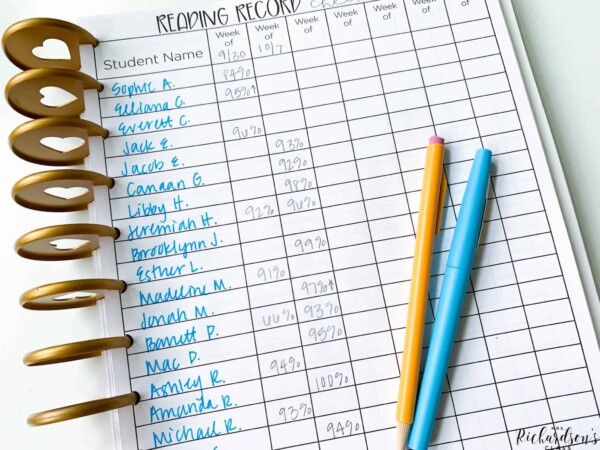 READING RECORD
Student Name Week of 9/30 Week of 10/7 Week of Week of Week of Week of Week of
Sophie A. 84%
Elliana C. 95%↑
Everett C.
Jack E. 96%
Jacob E. 93%
Canaan G. 92%
Libby H. 98%
Jeremiah H. 92% 96%
Brooklynn J.
Esther L. 99%
Madeline M. 91%
Jonah M. 97%↑
Barrett P. 66% 93%
Mac D. 95%
Ashley R. 94%
Amanda R. 100%
Michael R. 93%
94%
Richardson's
CLASS